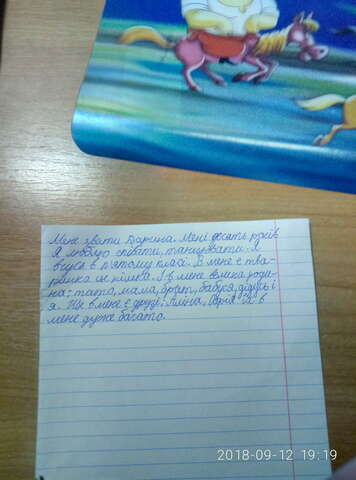 Мене звати Дарина. Мені десять років
Я люблю співати, танцювати. Я
вчуся в п'ятому класі. В мене є тва-
ринка це кішка. І в мене велика роди-
на: тато, мама, брат, бабуся, дідусь і
я. Ще в мене є друзі: Аліна, Дарія їх в
мене дуже багато.
2018-09-12 19:19